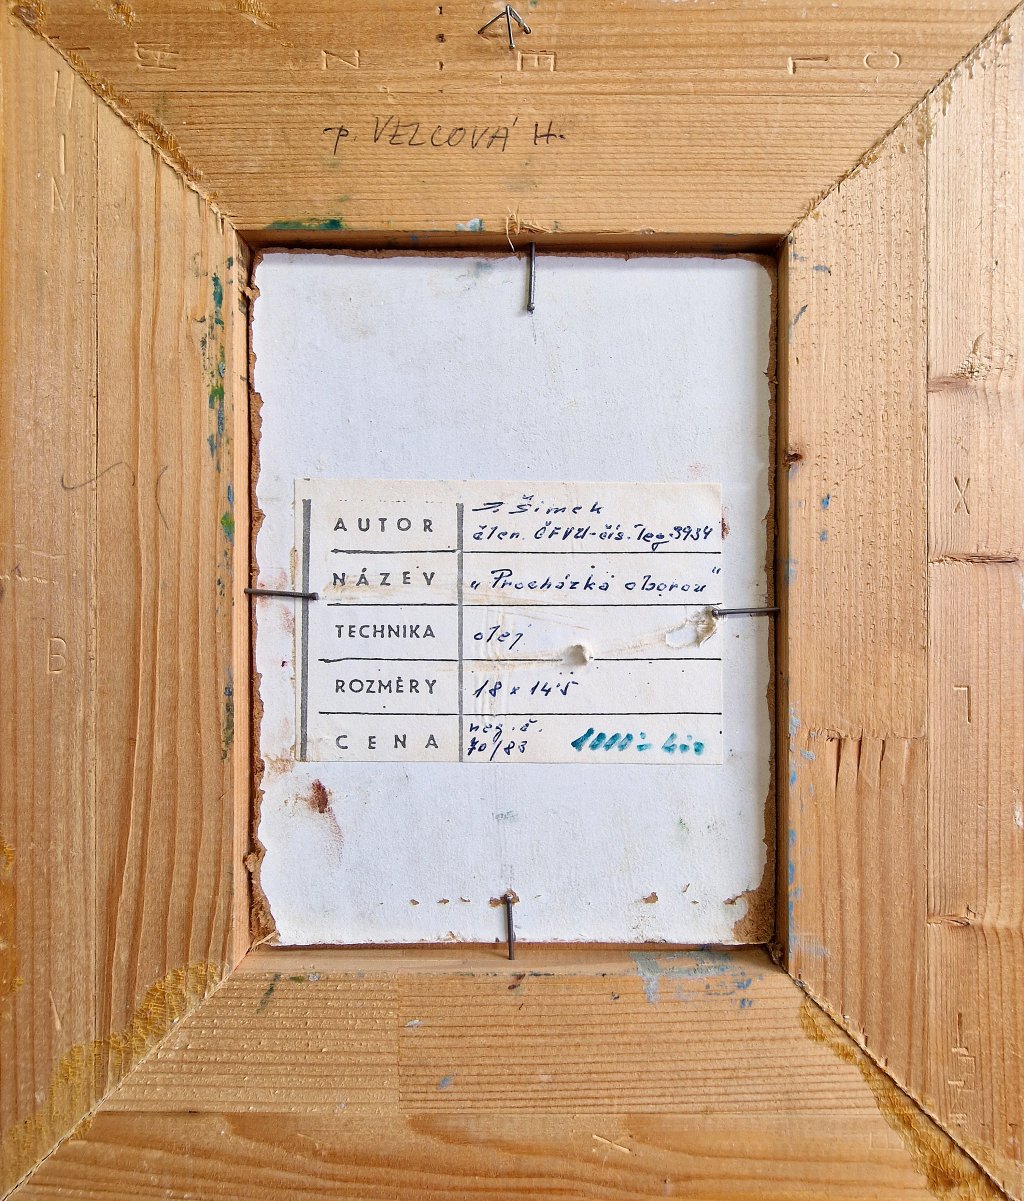 p. VELCOVÁ H.
AUTOR
J. Šimek
člen. ČFVU-čís. leg. 3934
NÁZEV
„Procházka oborou"
TECHNIKA
olej
ROZMĚRY
18 x 14'5
CENA
neg. č.
70/83
1000'- Kčs